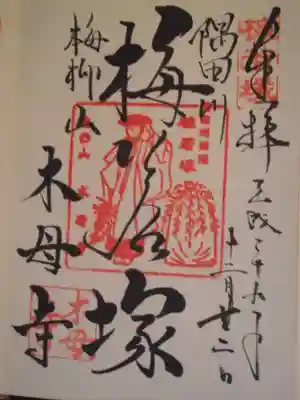 奉拝 平成二十年
十二月廿二日
隅田川
梅若塚
梅柳山
木母寺
木母寺